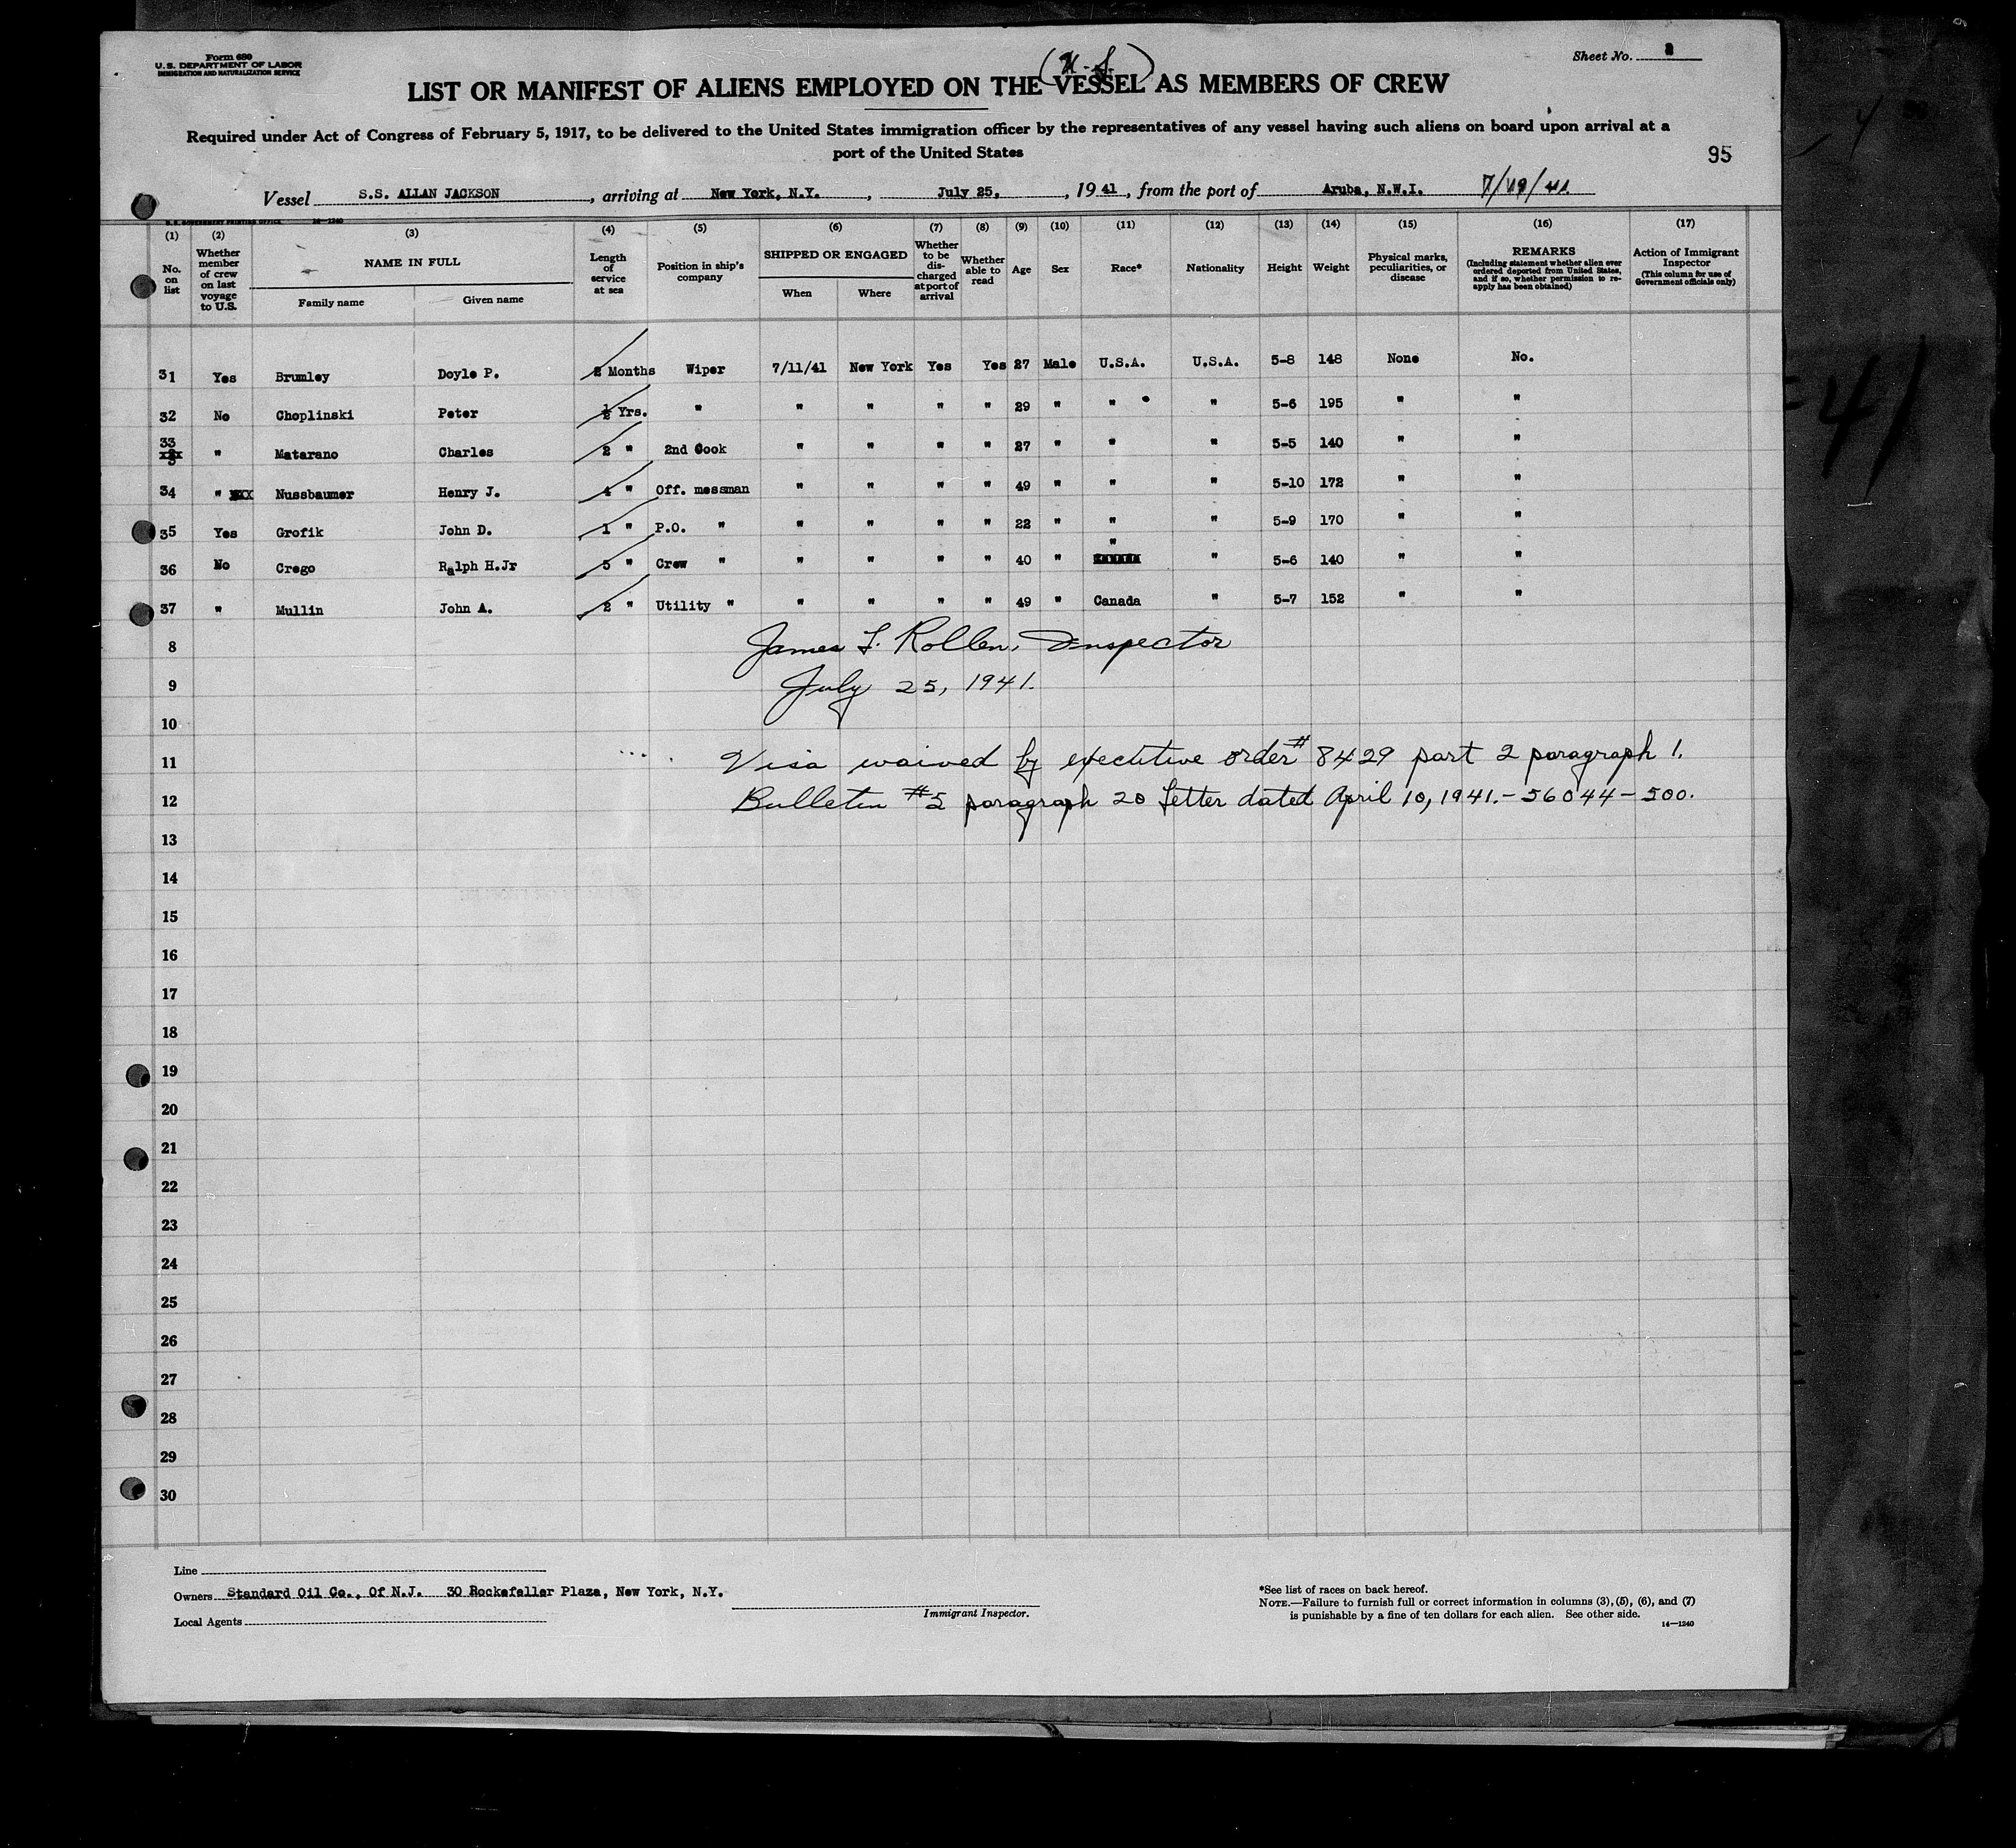 Form 680
U. S. DEPARTMENT OF LABOR
IMMIGRATION AND NATURALIZATION SERVICE
Sheet No.
LIST OR MANIFEST OF ALIENS EMPLOYED ON THE VESSEL AS MEMBERS OF CREW
Required under Act of Congress of February 5, 1917, to be delivered to the United States immigration officer by the representatives of any vessel having such aliens on board upon arrival at a
port of the United States
95
Vessel S.S. ALLAN JACKSON, arriving at New York, N.Y., July 25, 1941, from the port of Aruba, N.W.I. 7/19/41
U. S. GOVERNMENT PRINTING OFFICE 14—1240
(1) (2) (3) (4) (5) (6) (7) (8) (9) (10) (11) (12) (13) (14) (15) (16) (17)
No. on list
Whether member of crew on last voyage to U.S.
NAME IN FULL
Family name
Given name
Length of service at sea
Position in ship's company
SHIPPED OR ENGAGED
When
Where
Whether to be discharged at port of arrival
Whether able to read
Age
Sex
Race*
Nationality
Height
Weight
Physical marks, peculiarities, or disease
REMARKS
(Including statement whether alien ever ordered deported from United States, and if so, whether permission to re-apply has been obtained)
Action of Immigrant Inspector
(This column for use of Government officials only)
31 Yes Brumley Doyle P. 2 Months Wiper 7/11/41 New York Yes Yes 27 Male U.S.A. U.S.A. 5-8 148 None No.
32 No Choplinski Peter ½ Yrs. " " " " " 29 " " " 5-6 195 " "
33 " Matarano Charles 2 " 2nd Cook " " " " 27 " " " 5-5 140 " "
34 " Nussbaumer Henry J. 4 " Off. messman " " " " 49 " " " 5-10 172 " "
35 Yes Grofik John D. 1 " P.O. " " " " " 22 " " " 5-9 170 " "
36 No Crego Ralph H.Jr 5 " Crew " " " " " 40 " " " 5-6 140 " "
37 " Mullin John A. 2 " Utility " " " " " 49 " Canada " 5-7 152 " "
James F. Rollen, Inspector
8
July 25, 1941.
9
10
11 Visa waived by executive order # 8429 part 2 paragraph 1.
12 Bulletin #5 paragraph 20 letter dated April 10, 1941.—56044—500.
13
14
15
16
17
18
19
20
21
22
23
24
25
26
27
28
29
30
Line
Owners Standard Oil Co., Of N.J. 30 Rockefeller Plaza, New York, N.Y.
Local Agents
Immigrant Inspector.
*See list of races on back hereof.
NOTE.—Failure to furnish full or correct information in columns (3), (5), (6), and (7)
is punishable by a fine of ten dollars for each alien. See other side.
14—1240
41